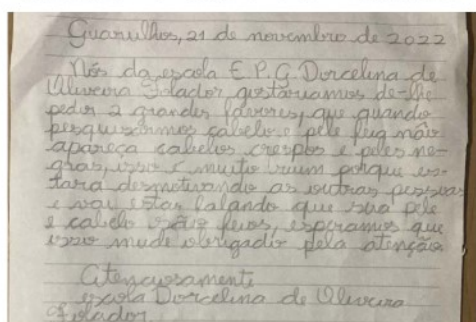 Guarulhos, 21 de novembro de 2022
Nós da escola E.P.G. Dorcelina de
Oliveira Folador gostaríamos de-lhe
pedir 2 grandes favores, que quando
pesquisarmos cabelo e pele feia não
apareça cabelos crespos e peles ne-
gras, isso é muito ruim porque es-
tara desmotivando as outras pessoas
e vai estar falando que sua pele
e cabelo são feios, esperamos que
isso mude obrigado pela atenção
Atenciosamente
escola Dorcelina de Oliveira
Folador